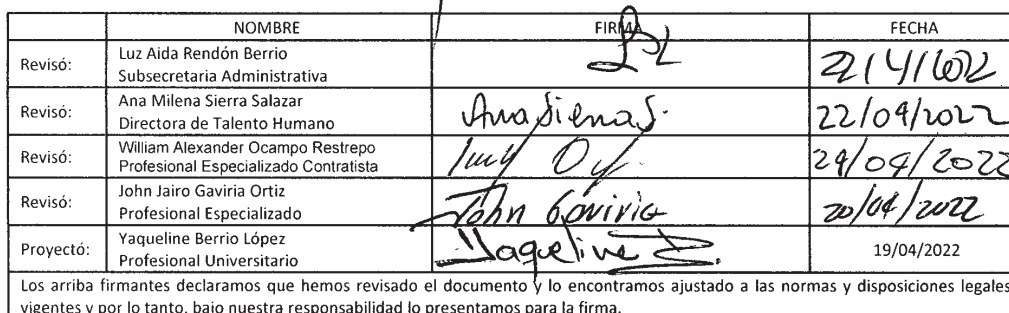 NOMBRE FIRMA FECHA
Revisó: Luz Aida Rendón Berrio
Subsecretaria Administrativa
22/4/2022
Revisó: Ana Milena Sierra Salazar
Directora de Talento Humano
Ana Sierra S. 22/04/2022
Revisó: William Alexander Ocampo Restrepo
Profesional Especializado Contratista
Revisó: John Jairo Gaviria Ortiz
Profesional Especializado
John Gaviria 20/04/2022
Proyectó: Yaqueline Berrio López
Profesional Universitario
Yaqueline B. 19/04/2022
Los arriba firmantes declaramos que hemos revisado el documento y lo encontramos ajustado a las normas y disposiciones legales
vigentes y por lo tanto, bajo nuestra responsabilidad lo presentamos para la firma.